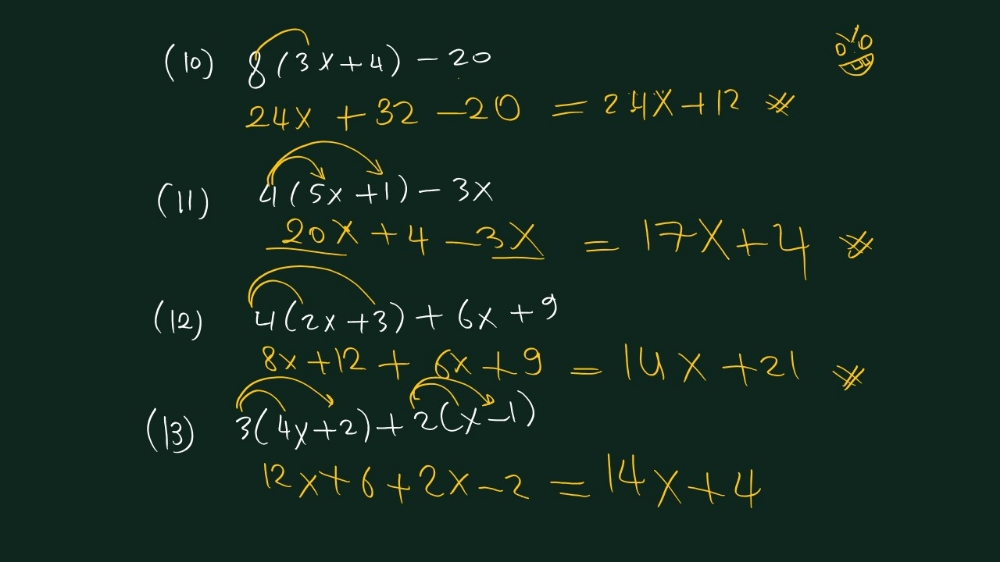 (10) 8(3x+4) - 20
24x + 32 - 20 = 24x+12 ※
(11) 4(5x+1) - 3x
20x + 4 - 3x = 17x+4 ※
(12) 4(2x+3) + 6x + 9
8x+12 + 6x + 9 = 14x + 21 ※
(13) 3(4x+2) + 2(x-1)
12x+6+2x-2 = 14x+4